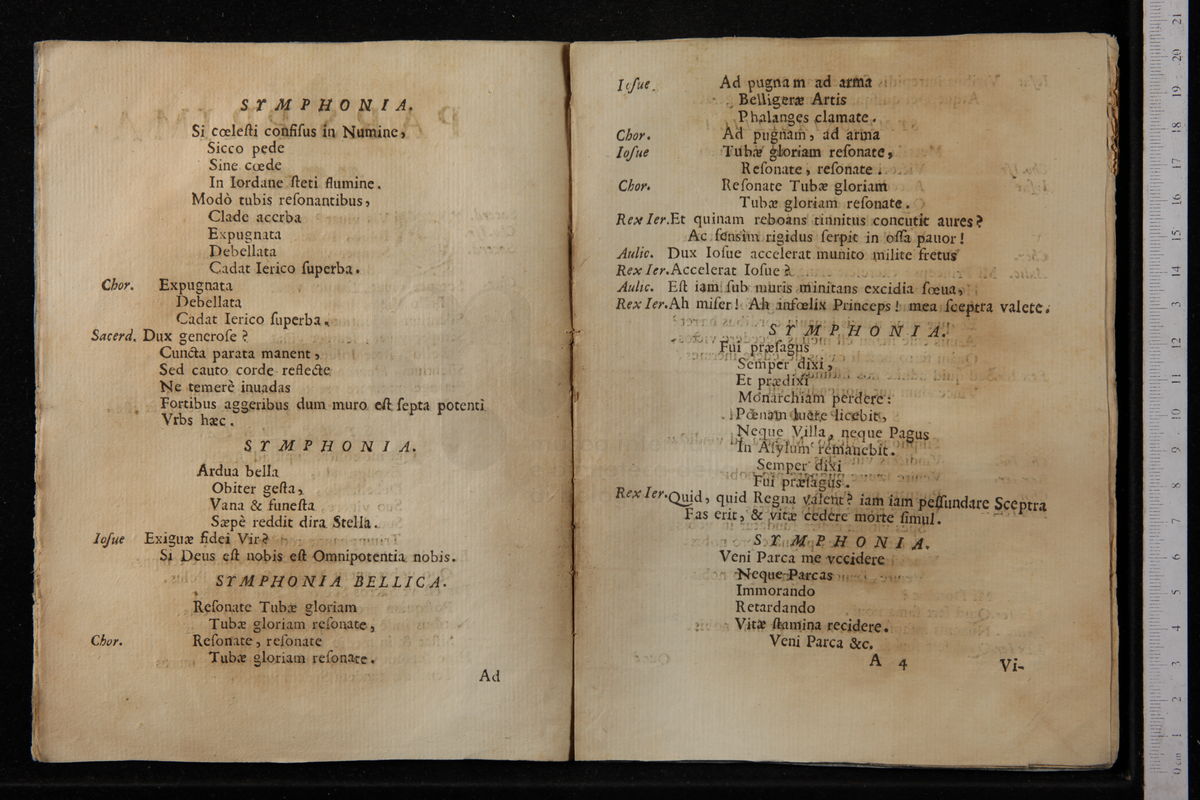 SYMPHONIA.
Si cœleſti confiſus in Numine,
Sicco pede
Sine cœde
In Iordane ſteti flumine.
Modò tubis reſonantibus,
Clade acerba
Expugnata
Debellata
Cadat Ierico ſuperba.
Chor. Expugnata
Debellata
Cadat Ierico ſuperba.
Sacerd. Dux generoſe?
Cuncta parata manent,
Sed cauto corde reflecte
Ne temerè inuadas
Fortibus aggeribus dum muro eſt ſepta potenti
Vrbs hæc.
SYMPHONIA.
Ardua bella
Obiter geſta,
Vana & funeſta
Sæpè reddit dira Stella.
Ioſue Exiguæ fidei Vir?
Si Deus eſt nobis eſt Omnipotentia nobis.
SYMPHONIA BELLICA.
Reſonate Tubæ gloriam
Tubæ gloriam reſonate,
Chor. Reſonate, reſonate
Tubæ gloriam reſonate.
Ad
Ioſue. Ad pugnam ad arma
Belligeræ Artis
Phalanges clamate.
Chor. Ad pugnam, ad arma
Ioſue Tubæ gloriam reſonate,
Reſonate, reſonate.
Chor. Reſonate Tubæ gloriam
Tubæ gloriam reſonate.
Rex Ier. Et quinam reboans tinnitus concutit aures?
Ac ſenſim rigidus ſerpit in oſſa pauor!
Aulic. Dux Ioſue accelerat munito milite fretus
Rex Ier. Accelerat Ioſue?
Aulic. Eſt iam ſub muris minitans excidia ſœua,
Rex Ier. Ah miſer! Ah infœlix Princeps! mea ſceptra valete.
SYMPHONIA.
Fui præſagus
Semper dixi,
Et prædixi
Monarchiam perdere:
Pœnam luere licebit,
Neque Villa, neque Pagus
In Aſylum remanebit.
Semper dixi
Fui præſagus.
Rex Ier. Quid, quid Regna valent? iam iam peſſundare Sceptra
Fas erit, & vitæ cedere morte ſimul.
SYMPHONIA.
Veni Parca me occidere
Neque Parcas
Immorando
Retardando
Vitæ ſtamina recidere.
Veni Parca &c.
A 4
Vi-